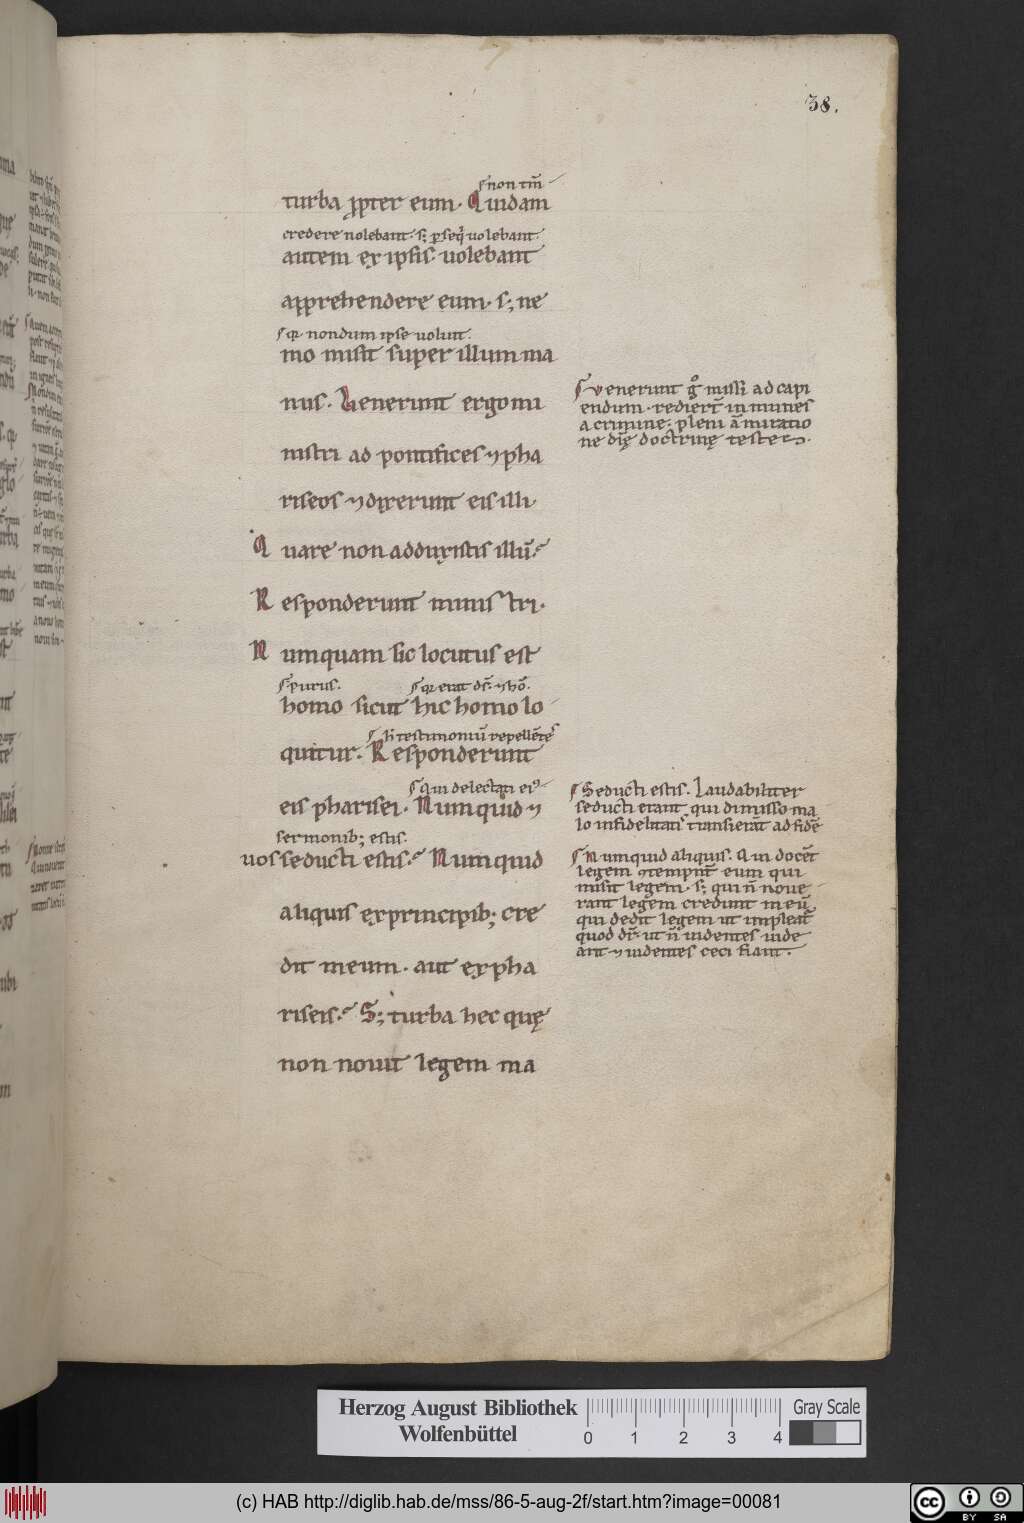 38.
non tm̄
turba ꝓpter eum. Quidam
credere nolebant. s; ꝑseq̄ uolebant.
autem ex ipsis uolebant
apprehendere eum. s; ne
qr nondum ipse uoluit.
mo misit super illum ma
nus. Uenerunt ergo mi
nistri ad pontifices ⁊ pha
riseos ⁊ dixerunt eis illi.
Quare non adduxistis illū.
Responderunt ministri.
Numquam sic locutus est
purus. qr erat ds̄. ⁊ hō.
homo sicut hic homo lo
testimoniū repellētes
quitur. Responderunt
Qui delectati ei
eis pharisei. Numquid ⁊
sermonib; estis.
uos seducti estis. Numquid
aliquis ex principib; cre
dit in eum. aut ex pha
riseis. S; turba hec quę
non nouit legem ma
Venerunt gͦ missi ad capi
endum. redierт̄ inmunes
a crimine. pleni āmiratio
ne diuię doctrinę testes.
Seducti estis. Laudabiliter
seducti erant qui dimisso ma
lo infidelitatis transierāt ad fidē
Numquid aliquis. Qui docēt
legem ⁊ tempn̄t eum qui
misit legem. s; qui n̄ noue
rant legem credunt in eū
qui dedit legem ut impleat̄
quod dr̄. ut n̄ uidentes uide
ant ⁊ uidentes ceci fiant.
Herzog August Bibliothek
Wolfenbüttel
0 1 2 3 4
Gray Scale
(c) HAB http://diglib.hab.de/mss/86-5-aug-2f/start.htm?image=00081
cc BY SA